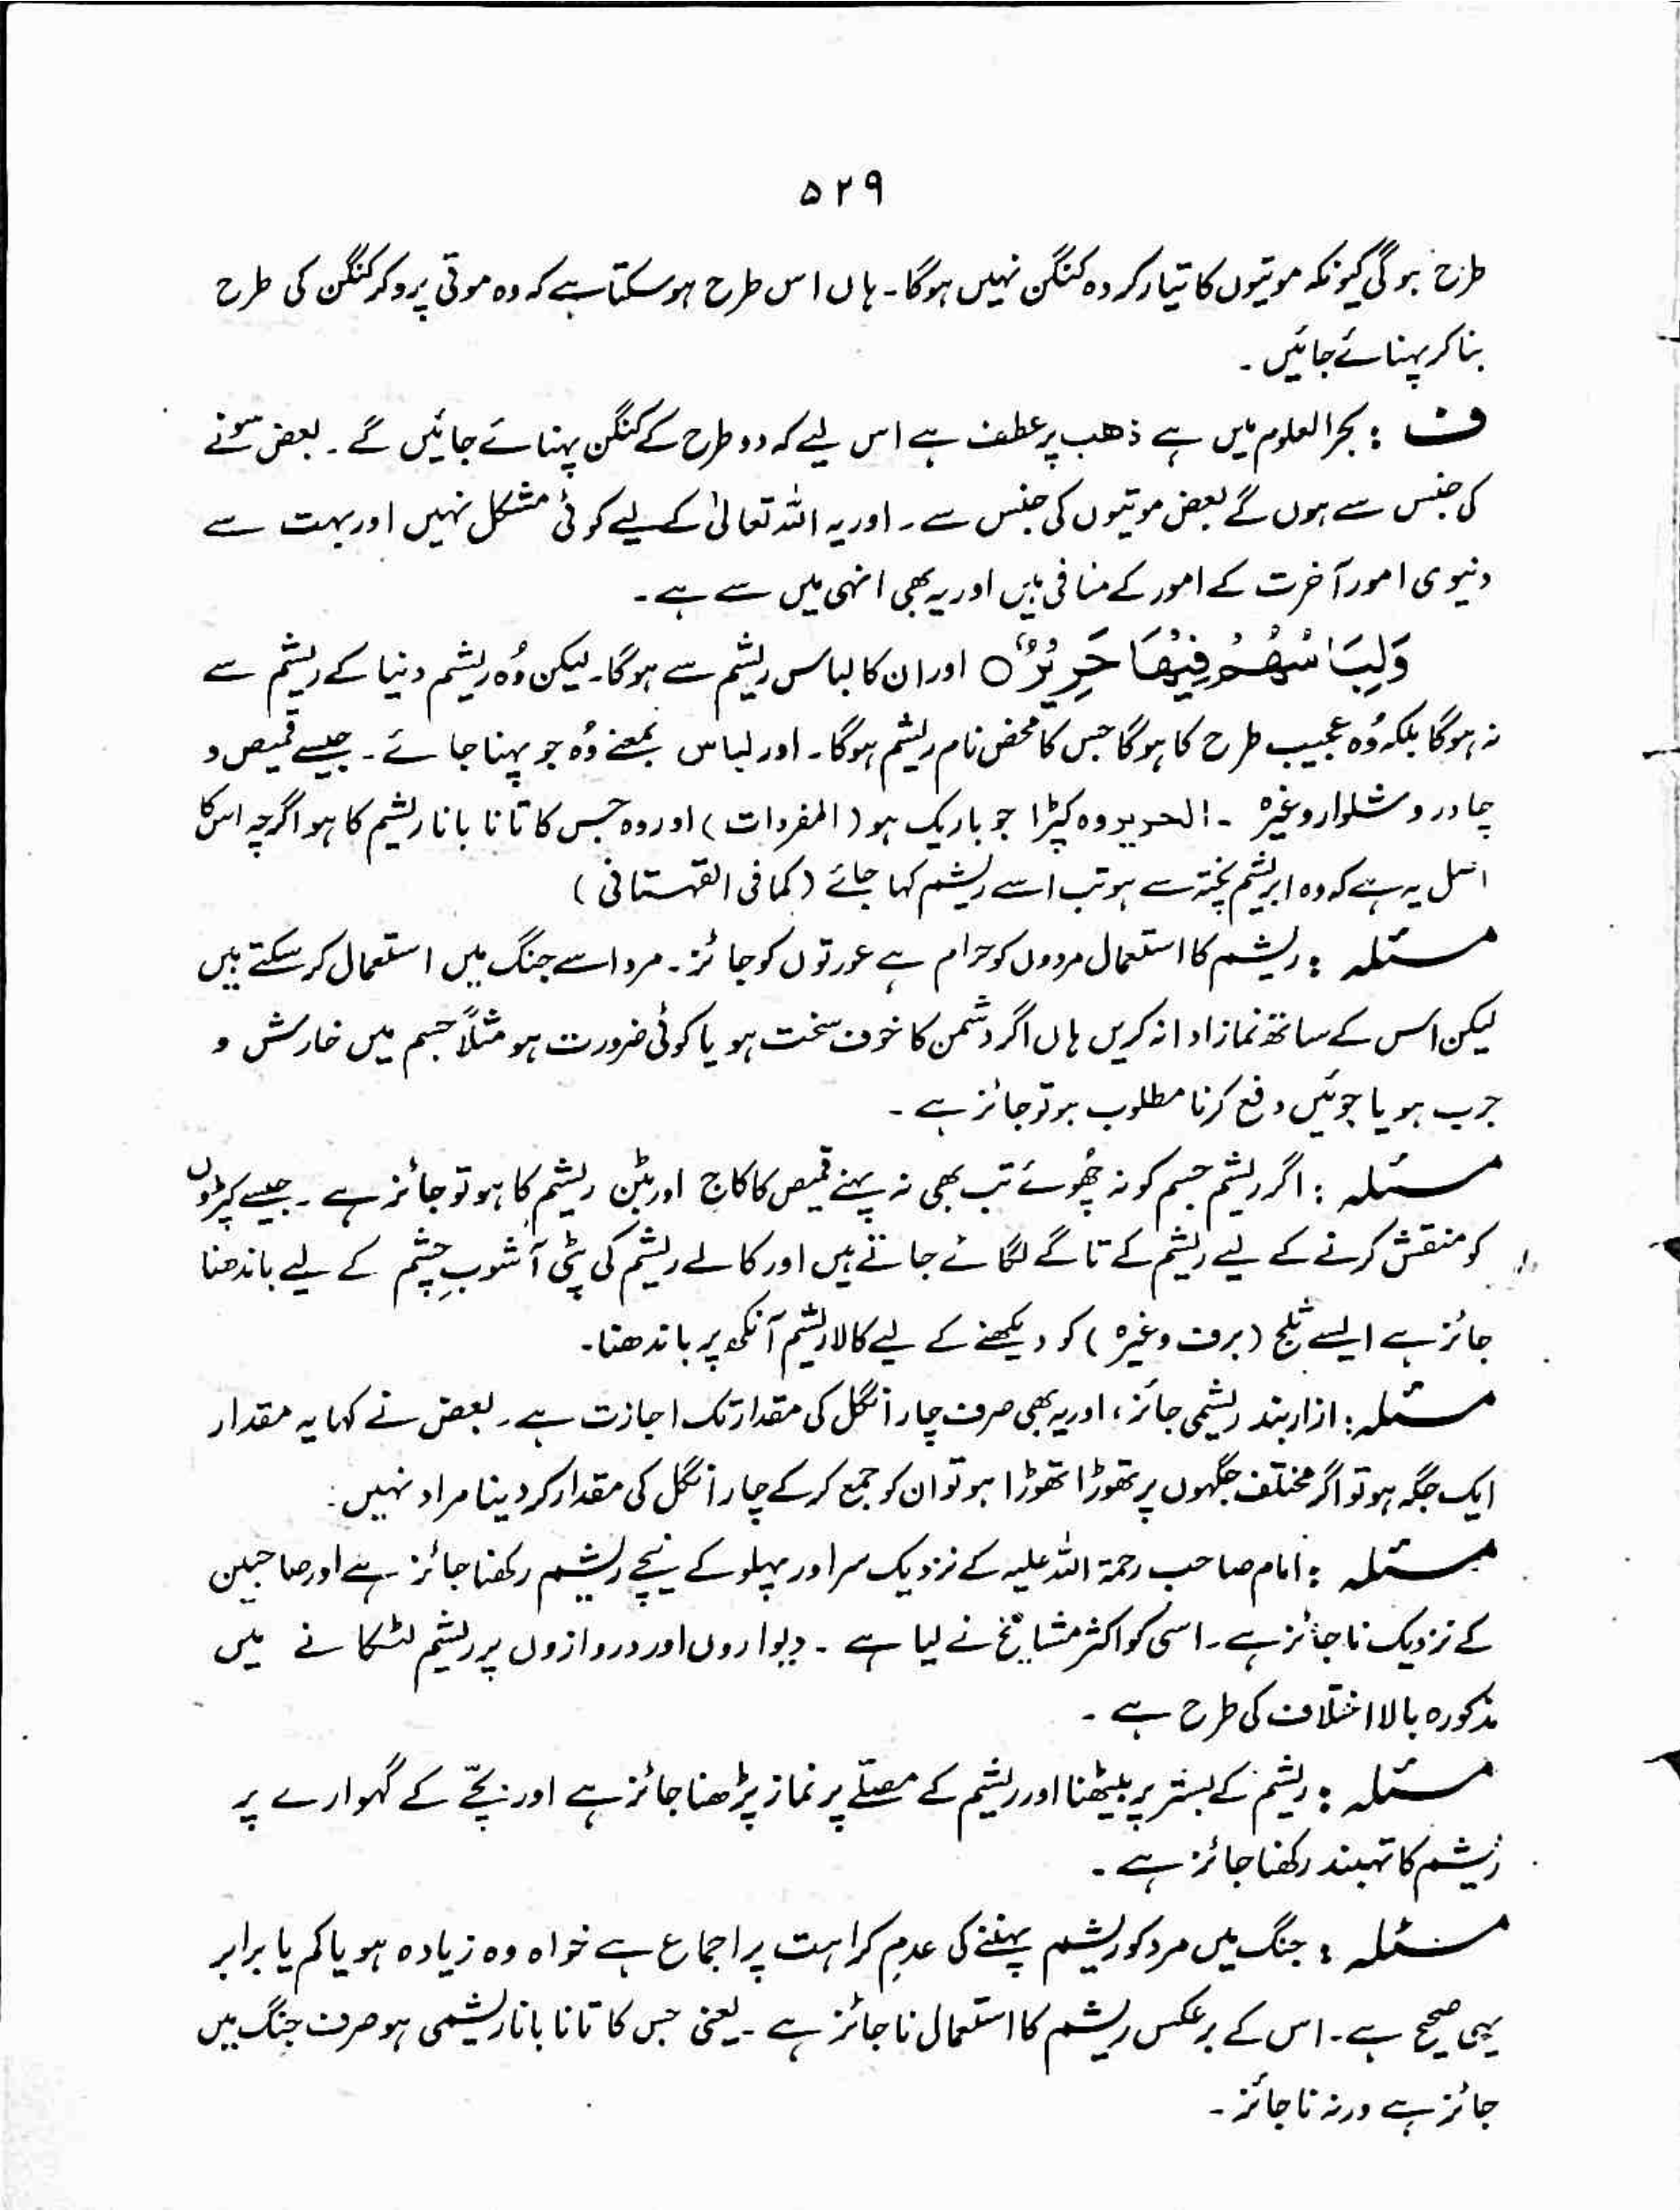 ۵۲۹
طرح ہوگی کیونکہ موتیوں کا تیار کردہ کنگن نہیں ہوگا۔ ہاں اس طرح ہوسکتا ہے کہ وہ موتی پرو کر کنگن کی طرح
بنا کر پہنائے جائیں ۔
ف : بحر العلوم میں ہے ذھب پر عطف ہے اس لیے کہ دو طرح کے کنگن پہنائے جائیں گے ۔ بعض سونے
کی جنس سے ہوں گے بعض موتیوں کی جنس سے ۔ اور یہ اللہ تعالیٰ کے لیے کوئی مشکل نہیں اور بہت سے
دنیوی امور آخرت کے امور کے منافی ہیں اور یہ بھی انہی میں سے ہے ۔
وَلِبَاسُهُمْ فِيْهَا حَرِيْرٌ ○ اور ان کا لباس ریشم سے ہوگا۔ لیکن وُہ ریشم دنیا کے ریشم سے
نہ ہوگا بلکہ وُہ عجیب طرح کا ہوگا جس کا محض نام ریشم ہوگا۔ اور لباس بمعنے وُہ جو پہنا جائے ۔ جیسے قمیص و
چادر و شلوار وغیرہ ۔ الحریر وہ کپڑا جو باریک ہو ( المفردات ) اور وہ جس کا تانا بانا ریشم کا ہو اگرچہ اس کا
اصل یہ ہے کہ وہ ابریشم پختہ سے ہو تب اسے ریشم کہا جائے ( کما فی القہستانی )
مسئلہ : ریشم کا استعمال مردوں کو حرام ہے عورتوں کو جائز ۔ مرد اسے جنگ میں استعمال کرسکتے ہیں
لیکن اس کے ساتھ نماز ادا نہ کریں ہاں اگر دشمن کا خوف سخت ہو یا کوئی ضرورت ہو مثلاً جسم میں خارش و
جرب ہو یا جوئیں دفع کرنا مطلوب ہو تو جائز ہے ۔
مسئلہ : اگر ریشم جسم کو نہ چُھوئے تب بھی نہ پہنے قمیص کا کاج اور بٹن ریشم کا ہو تو جائز ہے ۔ جیسے کپڑوں
کو منقش کرنے کے لیے ریشم کے تاگے لگائے جاتے ہیں اور کالے ریشم کی پٹی آشوبِ چشم کے لیے باندھنا
جائز ہے ایسے ثلج ( برف وغیرہ ) کو دیکھنے کے لیے کالا ریشم آنکھ پر باندھنا۔
مسئلہ : ازار بند ریشمی جائز ، اور یہ بھی صرف چار انگل کی مقدار تک اجازت ہے ۔ بعض نے کہا یہ مقدار
ایک جگہ ہو تو اگر مختلف جگہوں پر تھوڑا تھوڑا ہو تو ان کو جمع کرکے چار انگل کی مقدار کر دینا مراد نہیں ۔
مسئلہ : امام صاحب رحمۃ اللہ علیہ کے نزدیک سر اور پہلو کے نیچے ریشم رکھنا جائز ہے اور صاحبین
کے نزدیک ناجائز ہے ۔ اسی کو اکثر مشایخ نے لیا ہے ۔ دیواروں اور دروازوں پر ریشم لٹکانے میں
مذکورہ بالا اختلاف کی طرح ہے ۔
مسئلہ : ریشم کے بستر پر بیٹھنا اور ریشم کے مصلّے پر نماز پڑھنا جائز ہے اور بچّے کے گہوارے پر
ریشم کا تہبند رکھنا جائز ہے ۔
مسئلہ : جنگ میں مرد کو ریشم پہننے کی عدمِ کراہت پر اجماع ہے خواہ وہ زیادہ ہو یا کم یا برابر
یہی صحیح ہے ۔ اس کے برعکس ریشم کا استعمال ناجائز ہے ۔ یعنی جس کا تانا بانا ریشمی ہو صرف جنگ میں
جائز ہے ورنہ ناجائز ۔